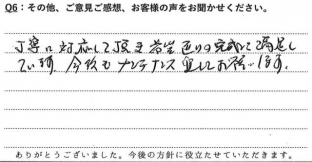 Q6：その他、ご意見ご感想、お客様の声をお聞かせください。
丁寧に対応して頂き希望通りの完成に満足し
ています。今後もメンテナンス宜しくお願いします。
ありがとうございました。今後の方針に役立たせていただきます。